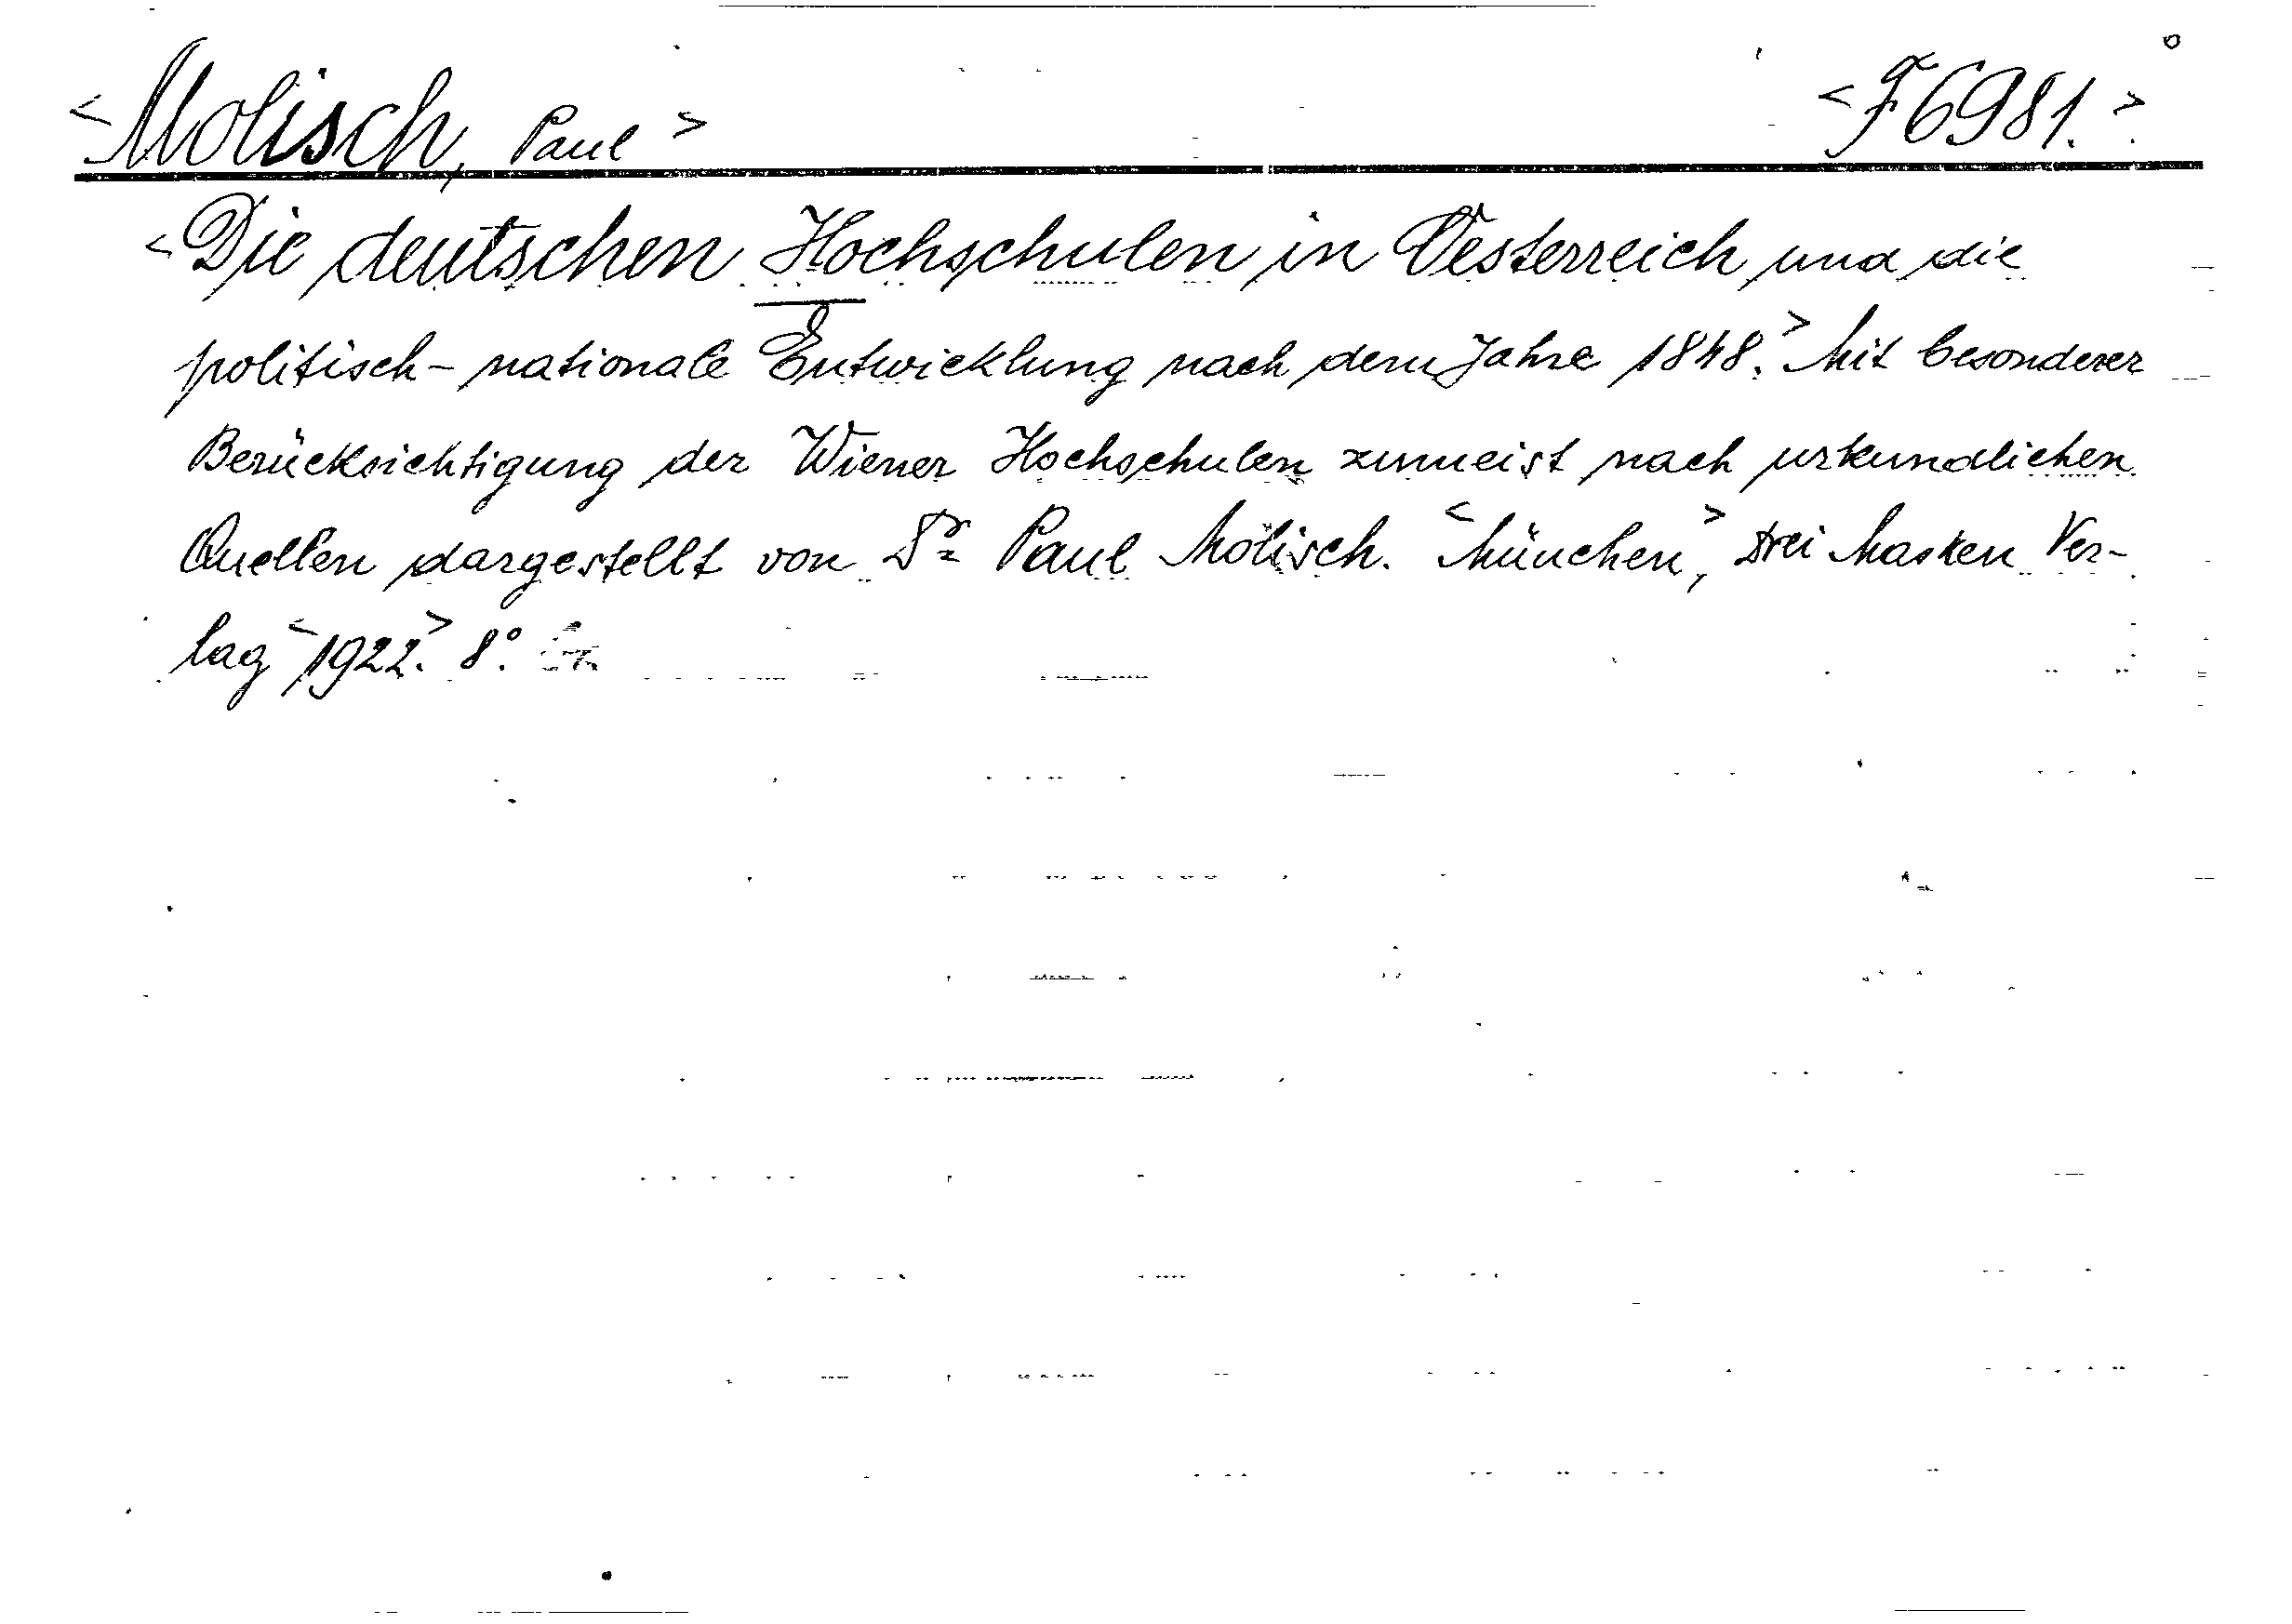 <Molisch, Paul> <F 6981.>
<Die deutschen Hochschulen in Oesterreich und die
politisch-nationale Entwicklung nach dem Jahre 1848.> Mit besonderer
Berücksichtigung der Wiener Hochschulen zumeist nach urkundlichen
Quellen dargestellt von Dr Paul Molisch. <München,> Drei Masken Ver-
lag <1922.> 8°.